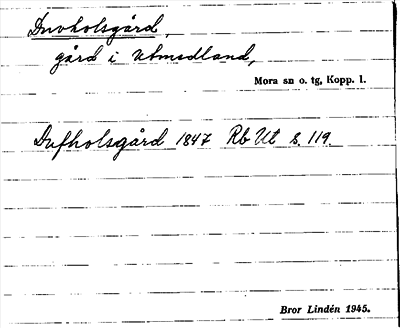 Duvholsgård,
gård i Utmedland,
Mora sn o. tg, Kopp. l.
Dufholsgård 1847 Rb Ut s. 119.
Bror Lindén 1945.